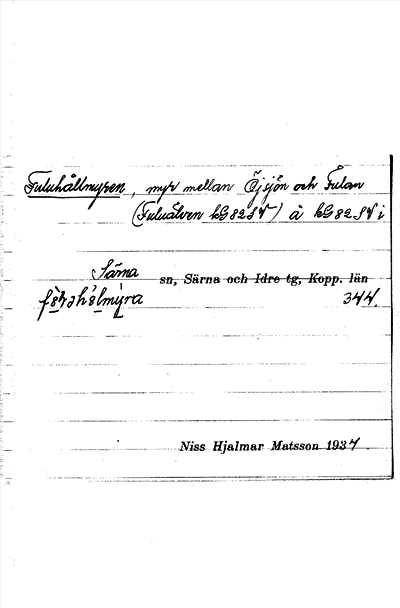 Fuluhållmyren, myr mellan Öjsjön och Fulan
(Fuluälven kG8284) å kG8284 i
Särna sn, Särna och Idre tg, Kopp. län
344.
Niss Hjalmar Matsson 1937.